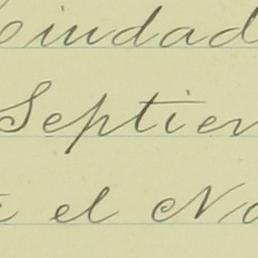 Ciudad
Septiem
e el No